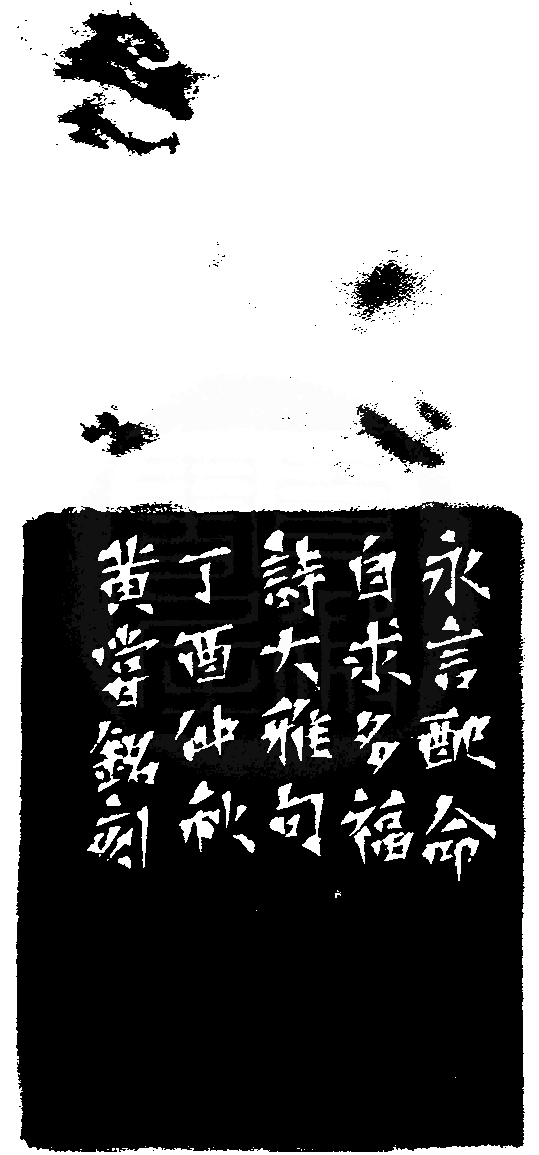 永言配命
自求多福
詩大雅句
丁酉仲秋
黄嘗銘刻